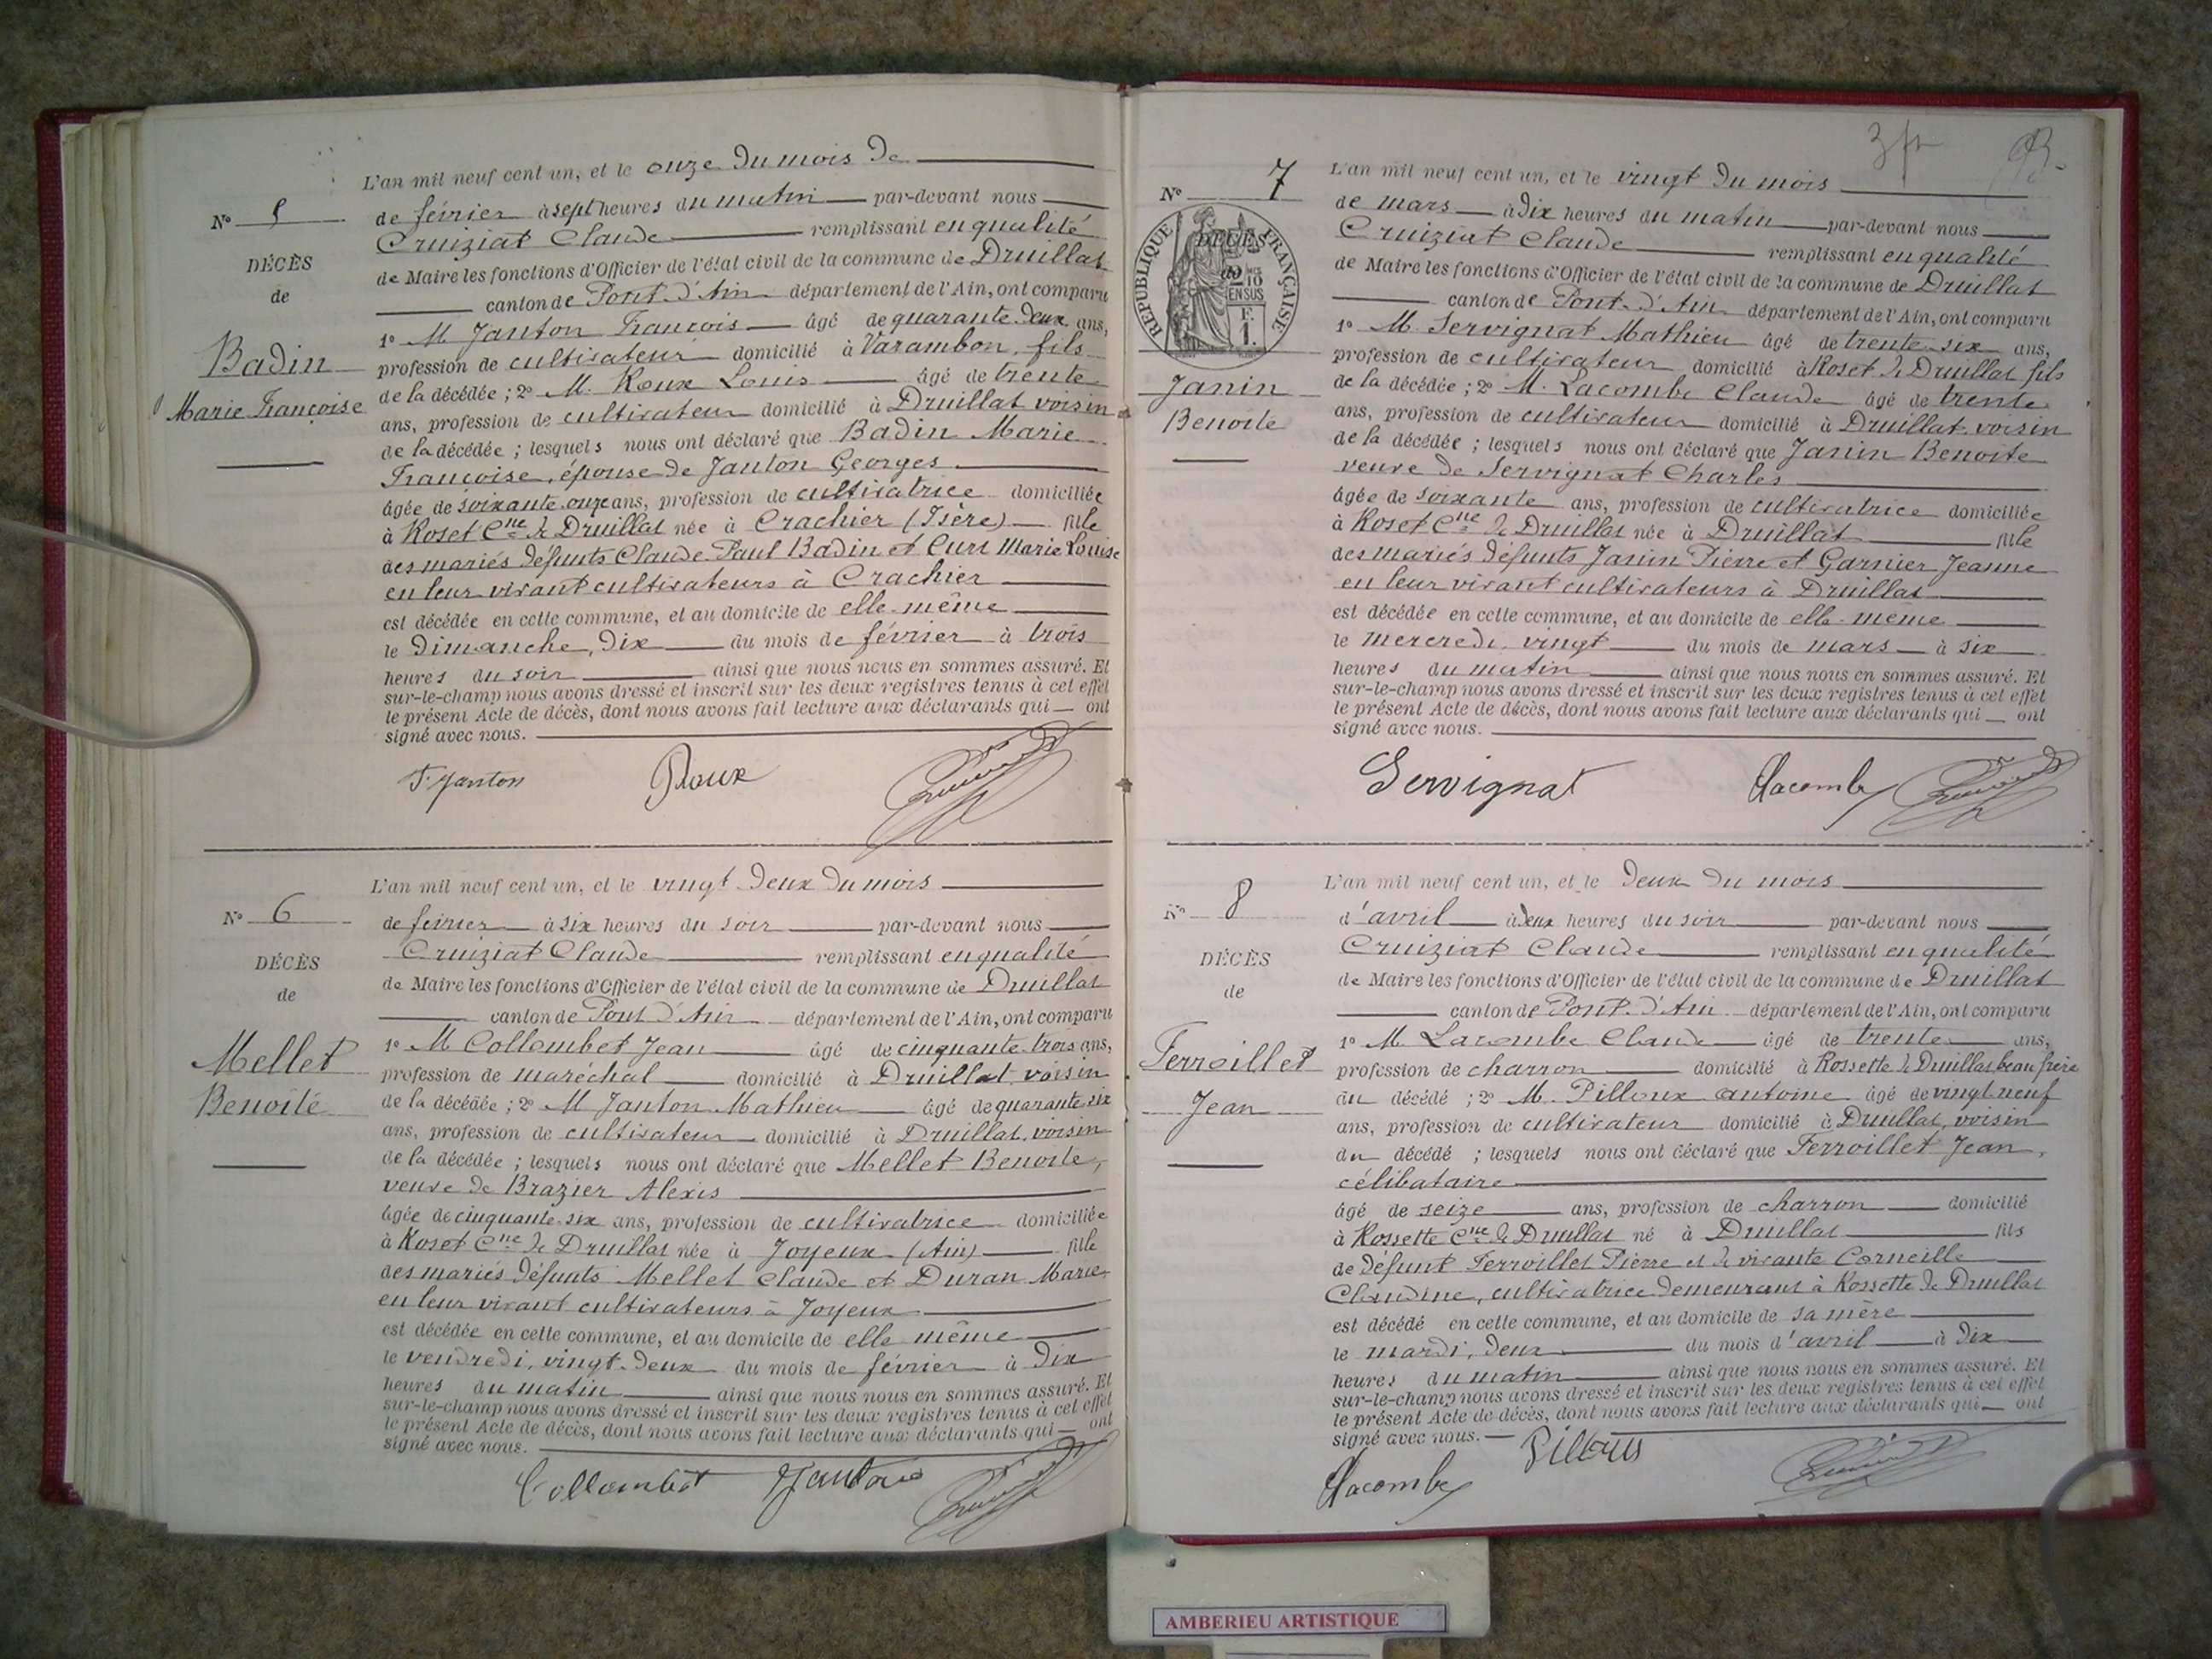 L'an mil neuf cent un, et le onze du mois de
N° 5
de février à sept heures du matin par-devant nous
Cruiziat Claude remplissant en qualité
DÉCÈS
de Maire les fonctions d'Officier de l'état civil de la commune de Druillat
de
canton de Pont d'Ain département de l'Ain, ont comparu
1° M. Janton François âgé de quarante deux ans,
Badin
profession de cultivateur domicilié à Varambon, fils
de la décédée ; 2° M. Roux Louis âgé de trente
Marie Françoise
ans, profession de cultivateur domicilié à Druillat voisin
de la décédée ; lesquels nous ont déclaré que Badin Marie
Françoise, épouse de Janton Georges
âgée de soixante onze ans, profession de cultivatrice domiciliée
à Roset Cne de Druillat née à Crachier (Isère) fille
des mariés défunts Claude Paul Badin et Curt Marie Louise
en leur vivant cultivateurs à Crachier
est décédée en cette commune, et au domicile de elle-même
le Dimanche, dix du mois de février à trois
heures du soir ainsi que nous nous en sommes assuré. Et
sur-le-champ nous avons dressé et inscrit sur les deux registres tenus à cet effet
le présent Acte de décès, dont nous avons fait lecture aux déclarants qui ont
signé avec nous.
F. Janton Roux
L'an mil neuf cent un, et le vingt deux du mois
N° 6
de février à six heures du soir par-devant nous
Cruiziat Claude remplissant en qualité
DÉCÈS
de Maire les fonctions d'Officier de l'état civil de la commune de Druillat
de
canton de Pont d'Ain département de l'Ain, ont comparu
1° M Collombet Jean âgé de cinquante trois ans,
Mellet
profession de maréchal domicilié à Druillat, voisin
de la décédée ; 2° M Janton Mathieu âgé de quarante six
Benoite
ans, profession de cultivateur domicilié à Druillat, voisin
de la décédée ; lesquels nous ont déclaré que Mellet Benoite,
veuve de Brazier Alexis
âgée de cinquante-six ans, profession de cultivatrice domiciliée
à Roset Cne de Druillat née à Joyeux (Ain) fille
des mariés défunts Mellet Claude et Duran Marie
en leur vivant cultivateurs à Joyeux
est décédée en cette commune, et au domicile de elle même
le vendredi, vingt-deux du mois de février à dix
heures du matin ainsi que nous nous en sommes assuré. Et
sur-le-champ nous avons dressé et inscrit sur les deux registres tenus à cet effet
le présent Acte de décès, dont nous avons fait lecture aux déclarants qui ont
signé avec nous.
Collombet Janton
3 fr
L'an mil neuf cent un, et le vingt du mois
N° 7
de mars à dix heures du matin par-devant nous
RÉPUBLIQUE FRANÇAISE
DÉCÈS
2/10
EN SUS
F.
1.
Cruiziat Claude remplissant en qualité
de Maire les fonctions d'Officier de l'état civil de la commune de Druillat
canton de Pont d'Ain département de l'Ain, ont comparu
1° M. Servignat Mathieu âgé de trente-six ans,
profession de cultivateur domicilié à Roset de Druillat fils
Janin
de la décédée ; 2° M. Lacombe Claude âgé de trente
ans, profession de cultivateur domicilié à Druillat voisin
Benoite
de la décédée ; lesquels nous ont déclaré que Janin Benoite
veuve de Servignat Charles
âgée de soixante ans, profession de cultivatrice domiciliée
à Roset Cne de Druillat née à Druillat fille
des mariés défunts Janin Pierre et Garnier Jeanne
en leur vivant cultivateurs à Druillat
est décédée en cette commune, et au domicile de elle-même
le mercredi, vingt du mois de mars à six
heures du matin ainsi que nous nous en sommes assuré. Et
sur-le-champ nous avons dressé et inscrit sur les deux registres tenus à cet effet
le présent Acte de décès, dont nous avons fait lecture aux déclarants qui ont
signé avec nous.
Servignat Lacombe
L'an mil neuf cent un, et le deux du mois
N° 8
d'avril à deux heures du soir par-devant nous
Cruiziat Claude remplissant en qualité
DÉCÈS
de Maire les fonctions d'Officier de l'état civil de la commune de Druillat
de
canton de Pont-d'Ain département de l'Ain, ont comparu
1° M. Lacombe Claude âgé de trente ans,
Ferroillet
profession de charron domicilié à Rossette de Druillat beau frère
du décédé ; 2° M. Pilloux Antoine âgé de vingt-neuf
Jean
ans, profession de cultivateur domicilié à Druillat, voisin
du décédé ; lesquels nous ont déclaré que Ferroillet Jean,
célibataire
âgé de seize ans, profession de charron domicilié
à Rossette Cne de Druillat né à Druillat fils
de défunt Ferroillet Pierre et de vivante Corneille
Claudine, cultivatrice demeurant à Rossette de Druillat
est décédé en cette commune, et au domicile de sa mère
le mardi, deux du mois d'avril à dix
heures du matin ainsi que nous nous en sommes assuré. Et
sur-le-champ nous avons dressé et inscrit sur les deux registres tenus à cet effet
le présent Acte de décès, dont nous avons fait lecture aux déclarants qui ont
signé avec nous.
Lacombe Pilloux
AMBERIEU ARTISTIQUE